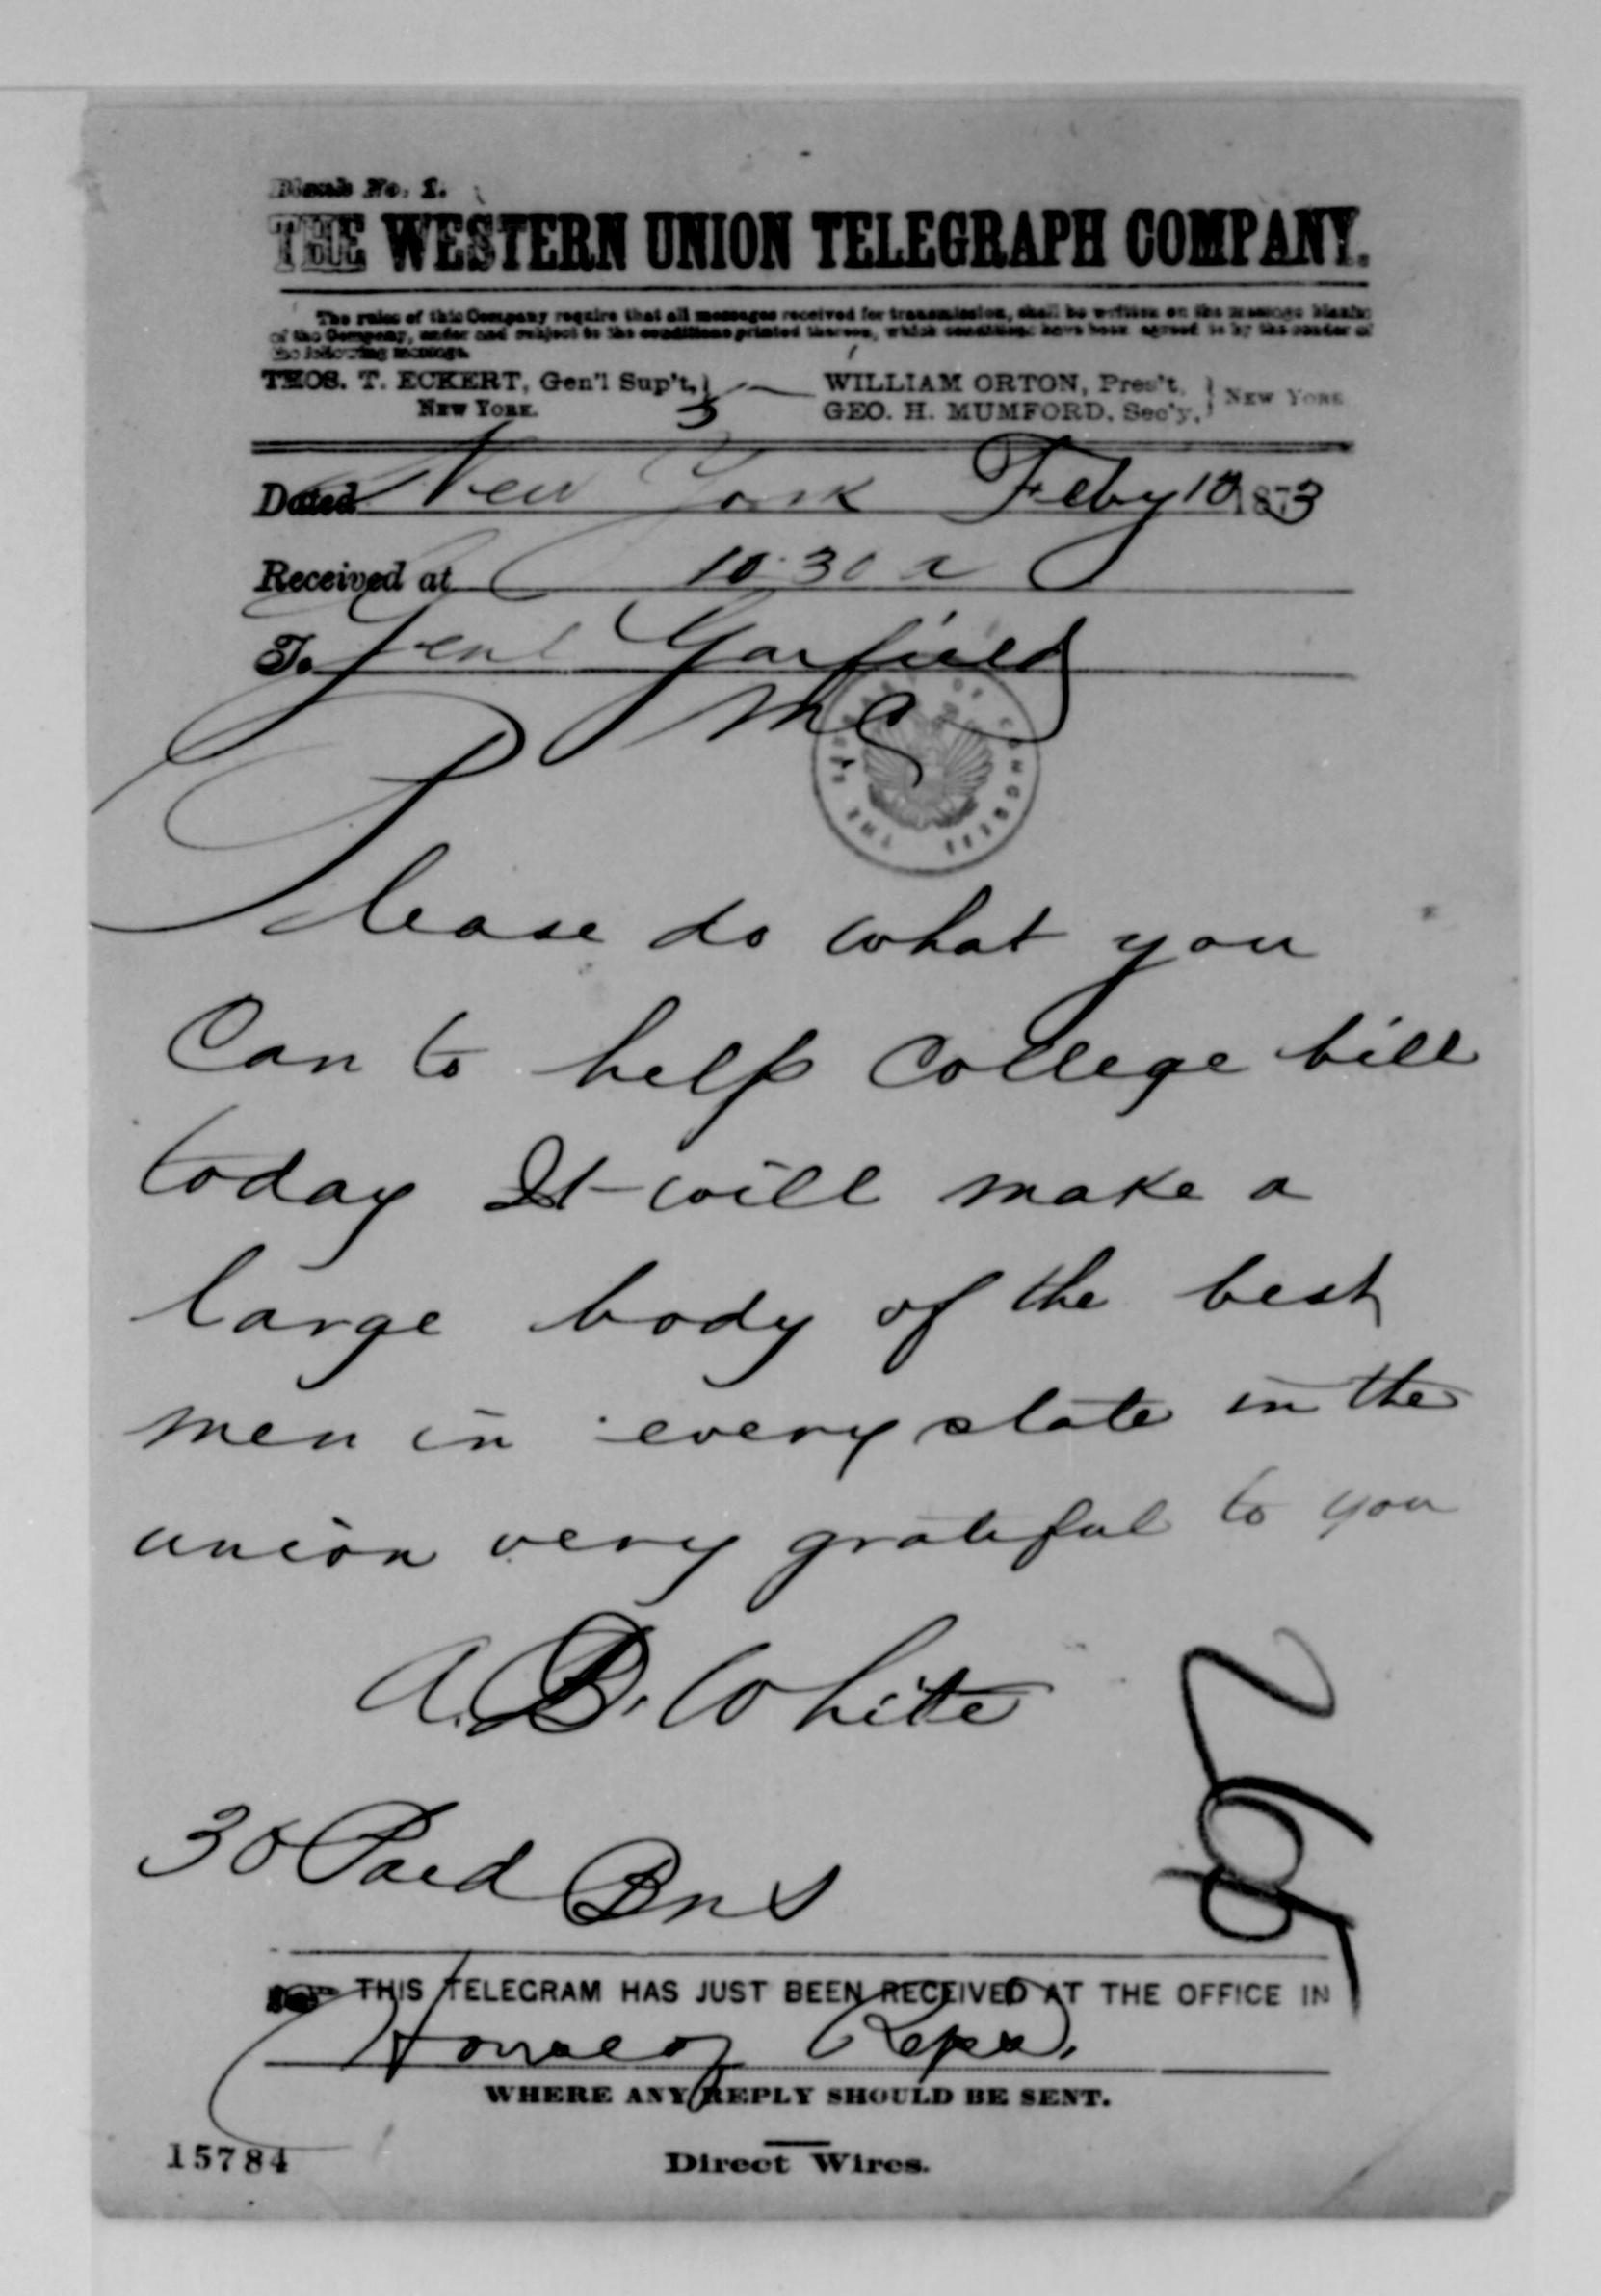 Blank No. 1.
THE WESTERN UNION TELEGRAPH COMPANY.
The rules of this Company require that all messages received for transmission, shall be written on the message blanks
of the Company, under and subject to the conditions printed thereon, which conditions have been agreed to by the sender of
the following message.
THOS. T. ECKERT, Gen'l Sup't, WILLIAM ORTON, Pres't,
NEW YORK. GEO. H. MUMFORD, Sec'y, NEW YORK
5
Dated New York Feby 10 1873
Received at 10.30 a
To Genl Garfield
M C
THE LIBRARY OF CONGRESS
Please do what you
Can to help College bill
today It will make a
large body of the best
men in every state in the
union very grateful to you
A. D. White
30 Paid
THIS TELEGRAM HAS JUST BEEN RECEIVED AT THE OFFICE IN
House of Reps.
WHERE ANY REPLY SHOULD BE SENT.
15784
Direct Wires.